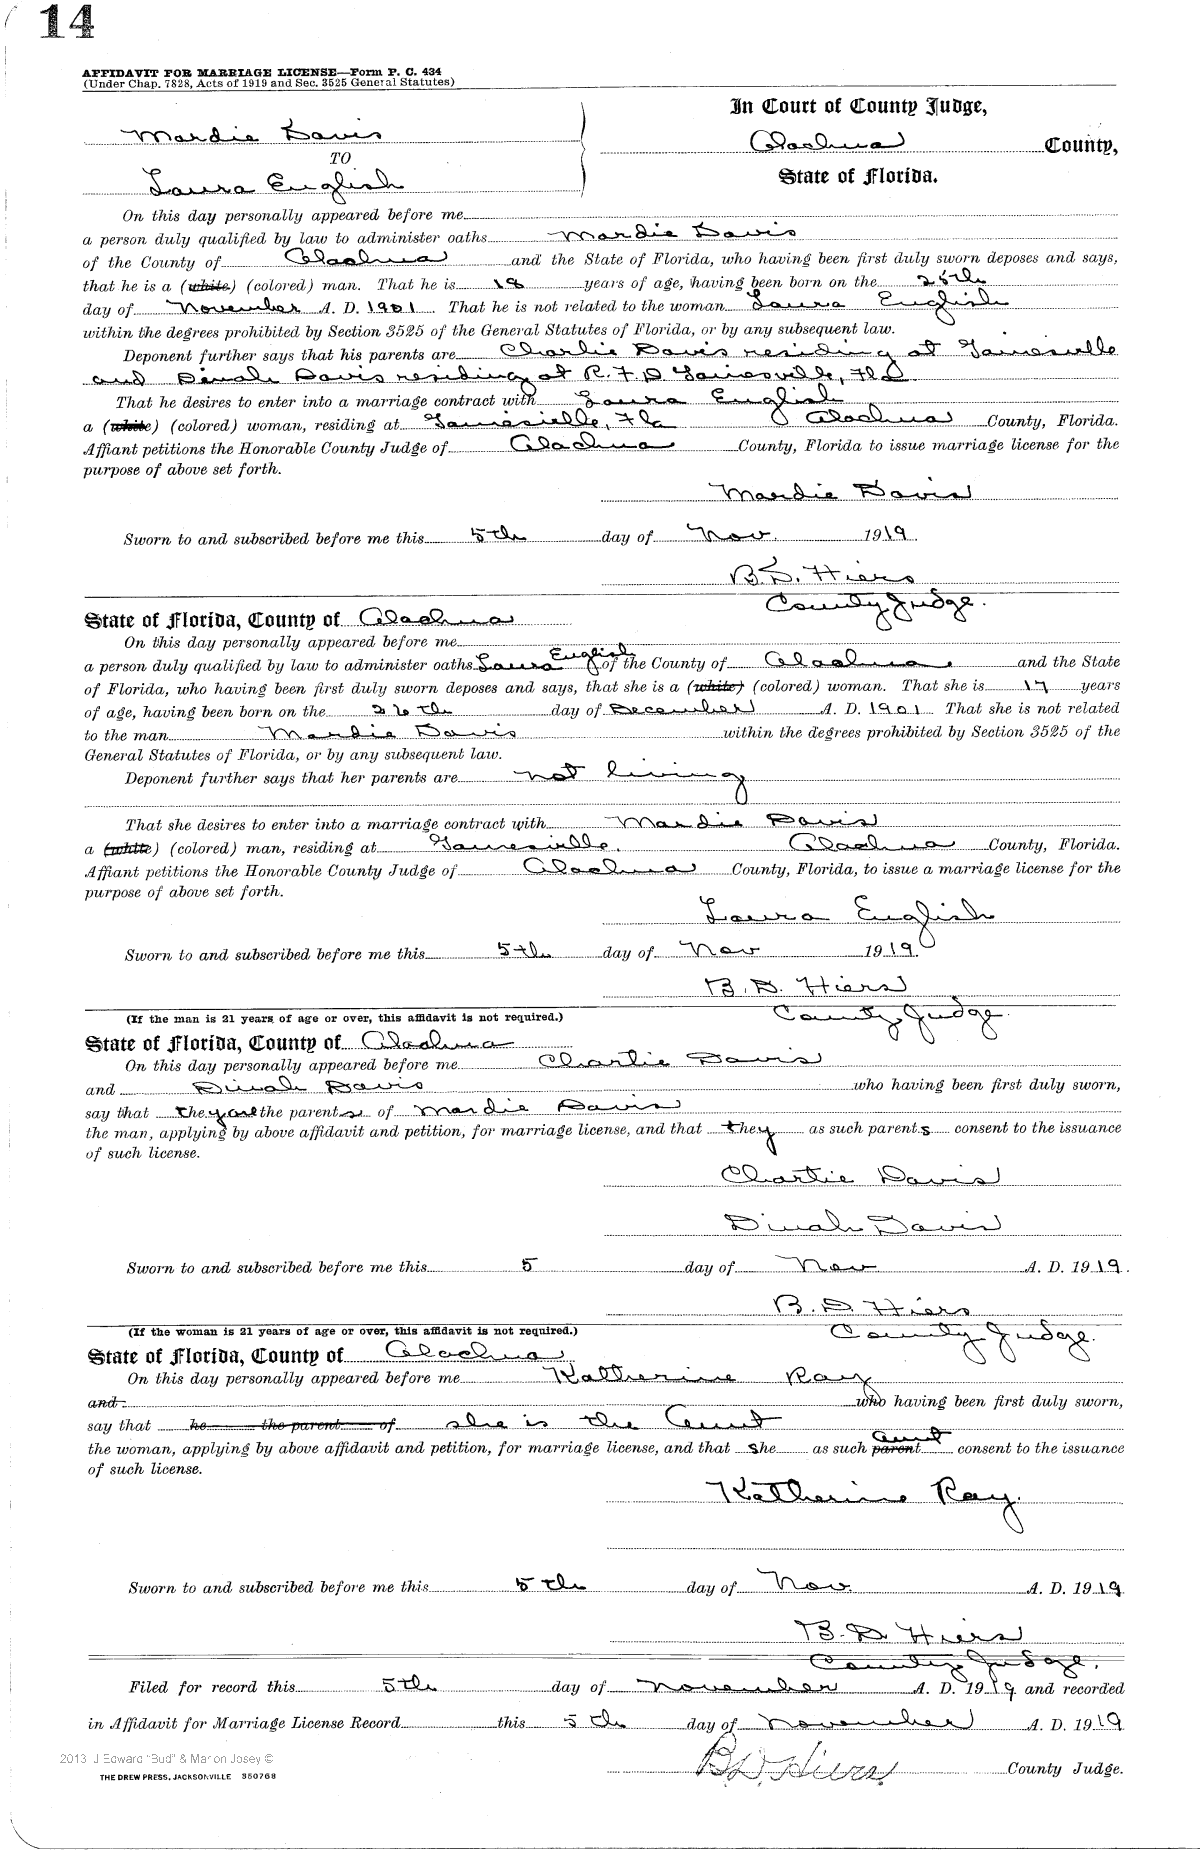 14
AFFIDAVIT FOR MARRIAGE LICENSE—Form P. C. 434
(Under Chap. 7828, Acts of 1919 and Sec. 3525 General Statutes)
In Court of County Judge,
Mardie Davis
Alachua County,
TO
State of Florida.
Laura English
On this day personally appeared before me
a person duly qualified by law to administer oaths Mardie Davis
of the County of Alachua and the State of Florida, who having been first duly sworn deposes and says,
that he is a (white) (colored) man. That he is 18 years of age, having been born on the 25th
day of November A. D. 1901 That he is not related to the woman Laura English
within the degrees prohibited by Section 3525 of the General Statutes of Florida, or by any subsequent law.
Deponent further says that his parents are Charlie Davis residing at Gainesville
and Dinah Davis residing at R.F.D Gainesville, Fla
That he desires to enter into a marriage contract with Laura English
a (white) (colored) woman, residing at Gainesville, Fla Alachua County, Florida.
Affiant petitions the Honorable County Judge of Alachua County, Florida to issue marriage license for the
purpose of above set forth.
Mardie Davis
Sworn to and subscribed before me this 5th day of Nov. 1919.
B.D. Hiers
County Judge.
State of Florida, County of Alachua
On this day personally appeared before me
a person duly qualified by law to administer oaths Laura English of the County of Alachua and the State
of Florida, who having been first duly sworn deposes and says, that she is a (white) (colored) woman. That she is 17 years
of age, having been born on the 26th day of December A. D. 1901 That she is not related
to the man Mardie Davis within the degrees prohibited by Section 3525 of the
General Statutes of Florida, or by any subsequent law.
Deponent further says that her parents are not living
That she desires to enter into a marriage contract with Mardie Davis
a (white) (colored) man, residing at Gainesville. Alachua County, Florida.
Affiant petitions the Honorable County Judge of Alachua County, Florida, to issue a marriage license for the
purpose of above set forth.
Laura English
Sworn to and subscribed before me this 5th day of Nov 1919
B. D. Hiers
County Judge.
(If the man is 21 years of age or over, this affidavit is not required.)
State of Florida, County of Alachua
On this day personally appeared before me Charlie Davis
and Dinah Davis who having been first duly sworn,
say that they are the parents of Mardie Davis
the man, applying by above affidavit and petition, for marriage license, and that they as such parents consent to the issuance
of such license.
Charlie Davis
Dinah Davis
Sworn to and subscribed before me this 5 day of Nov A. D. 1919.
B. D Hiers
County Judge.
(If the woman is 21 years of age or over, this affidavit is not required.)
State of Florida, County of Alachua
On this day personally appeared before me Katherine Ray
and who having been first duly sworn,
say that he the parent of she is the Aunt
the woman, applying by above affidavit and petition, for marriage license, and that she as such parent Aunt consent to the issuance
of such license.
Katherine Ray.
Sworn to and subscribed before me this 5th day of Nov. A. D. 1919
B. D. Hiers
County Judge.
Filed for record this 5th day of November A. D. 1919 and recorded
in Affidavit for Marriage License Record this 5th day of November A. D. 1919
B.D. Hiers County Judge.
2013 J Edward "Bud" & Marion Josey ©
THE DREW PRESS, JACKSONVILLE 350768